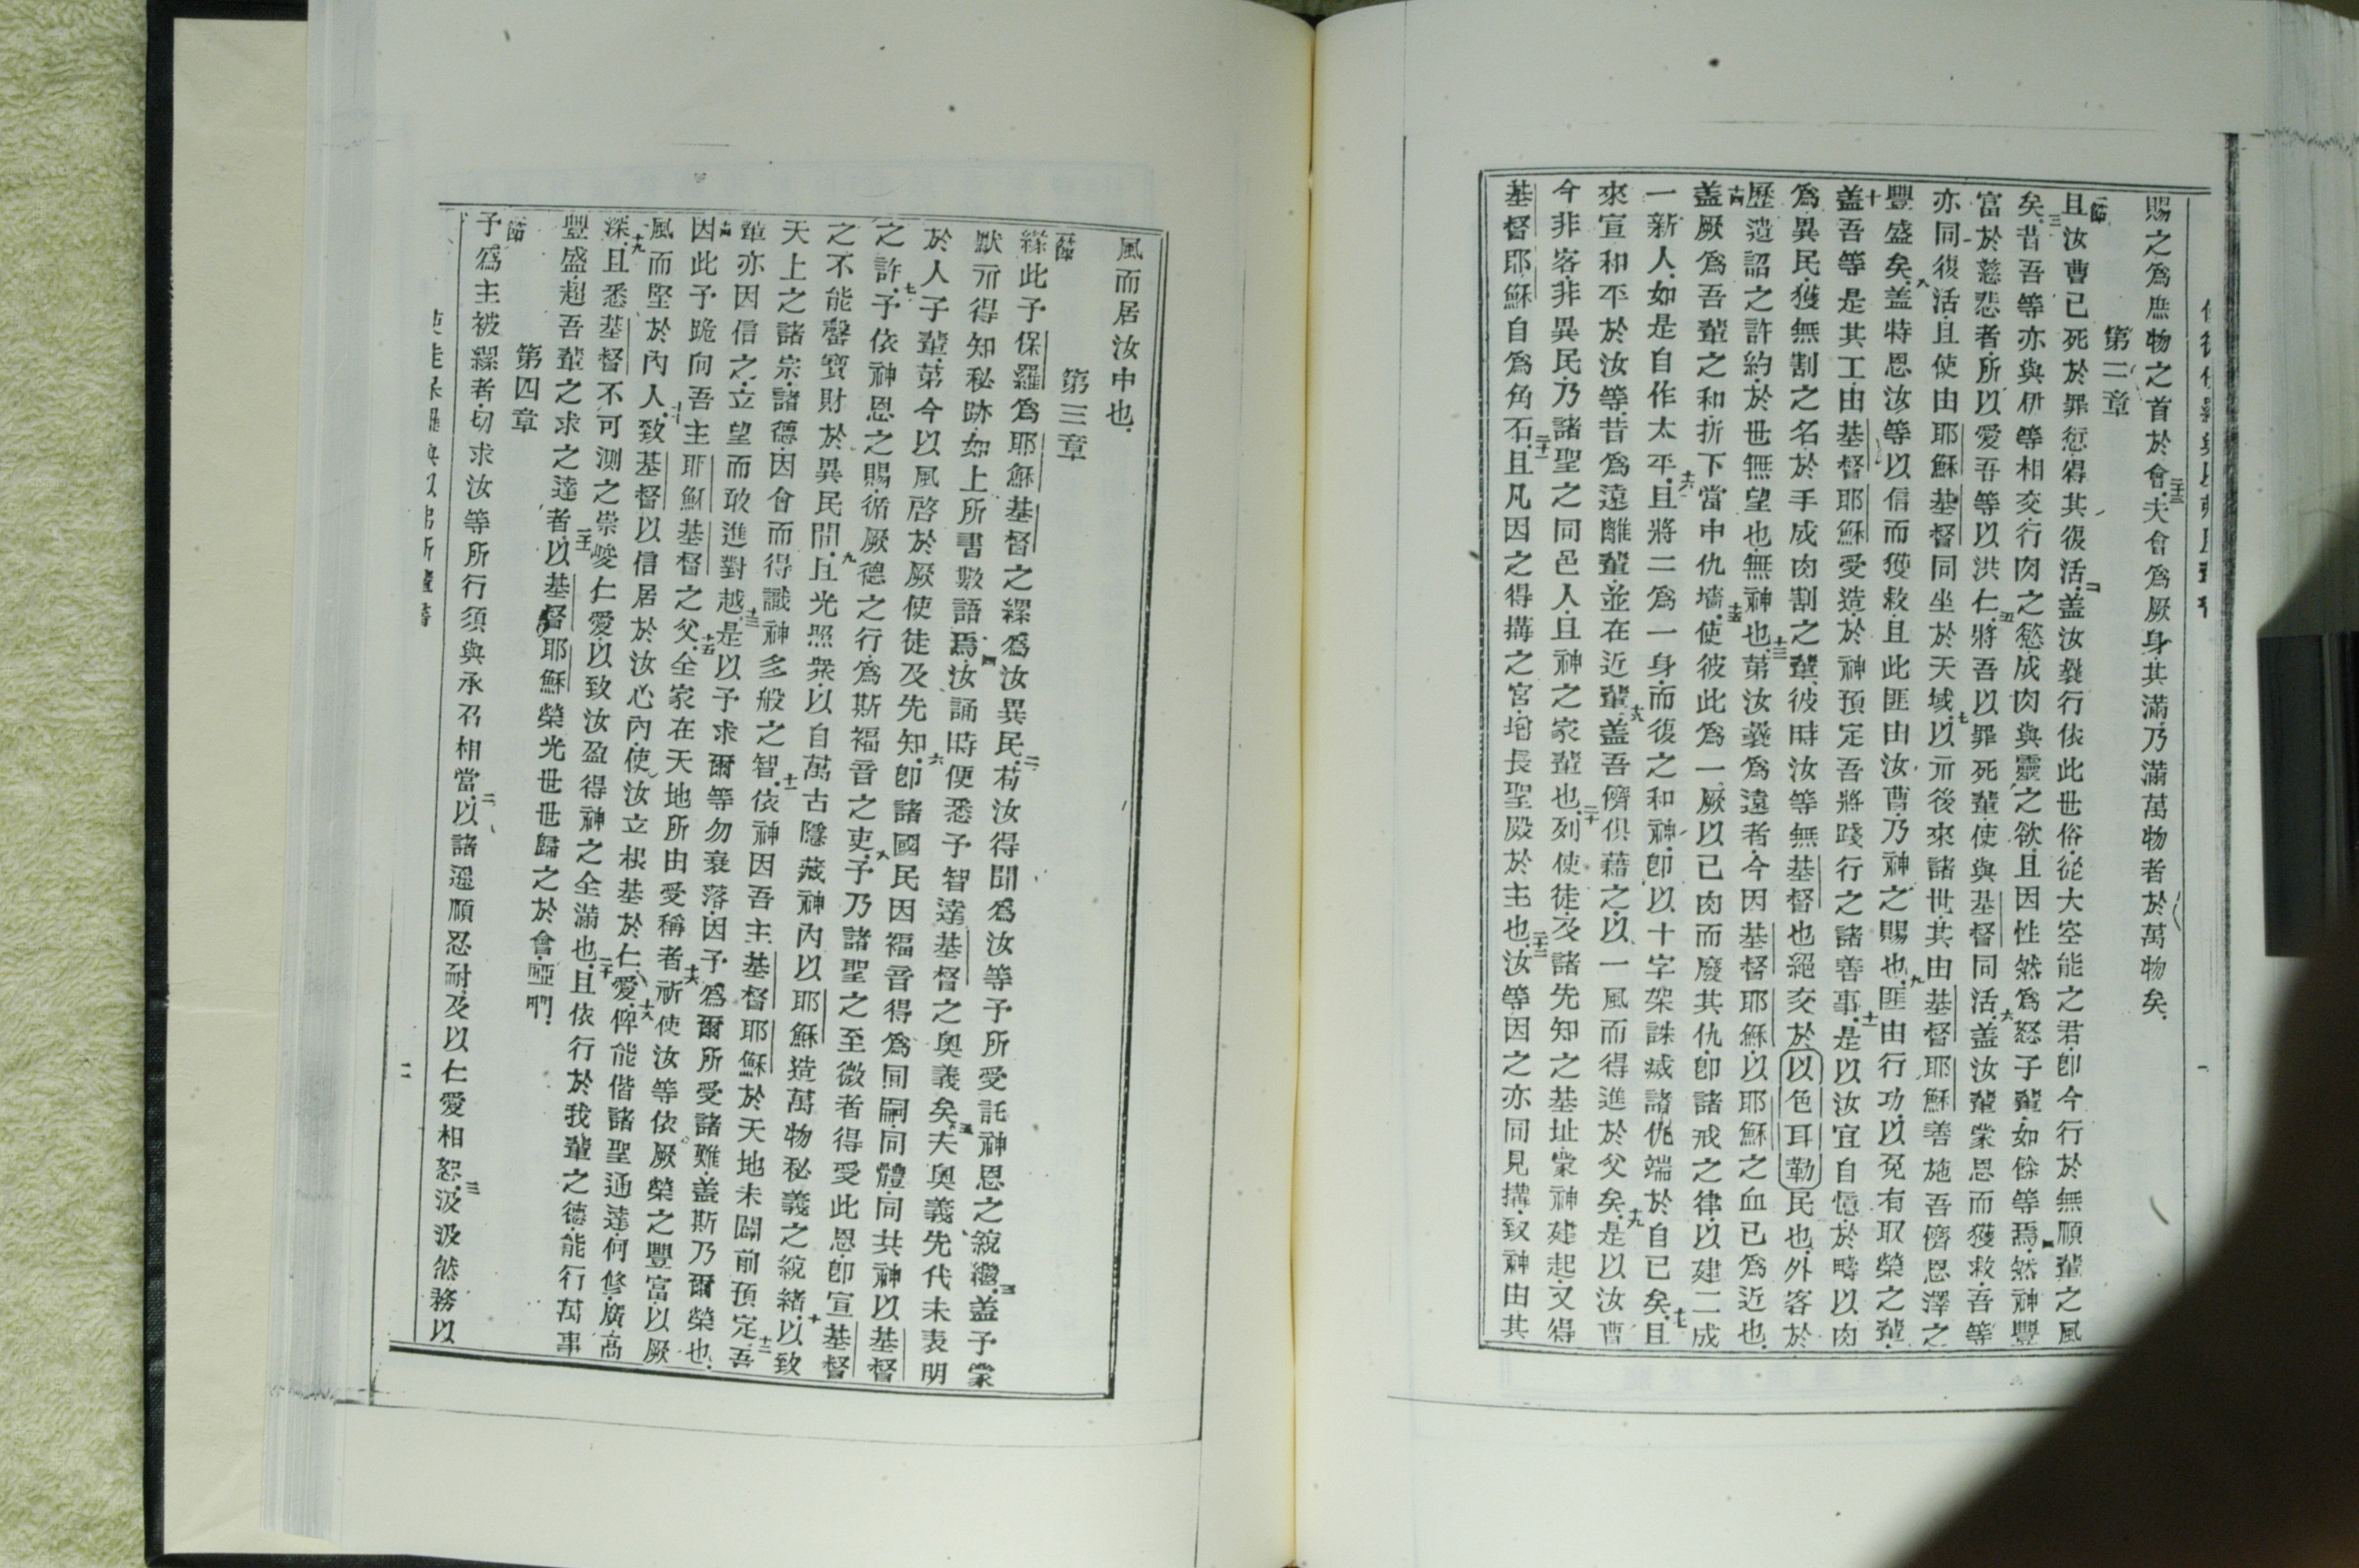 賜之爲庶物之首於會.二十三夫會爲厥身其滿.乃滿萬物者於萬物矣.
第二章
一節且汝曹已死於罪愆.得其復活.二盖汝曩行依此世俗.從大空能之君卽今行於無順輩之風
矣.三昔吾等亦與伊等相交行肉之慾.成肉與靈之欲.且因性然爲怒子輩.如餘等焉.四然神豐
富於慈悲者.所以愛吾等以洪仁.五將吾以罪死輩.使與基督同活.六盖汝輩蒙恩而獲救.吾等
亦同復活.且使由耶穌基督同坐於天域.七以示後來諸世.其由基督耶穌善施吾儕恩澤之
豐盛矣.八盖特恩汝等以信而獲救.且此匪由汝曹.乃神之賜也.九匪由行功.以免有取榮之輩.
十盖吾等是其工.由基督耶穌受造於神預定吾將踐行之諸善事.十一是以汝宜自憶.於疇以肉
爲異民.獲無割之名於手成肉割之輩.十二彼時汝等無基督也.絕交於以色耳勒民也.外客於
歷遺詔之許約.於世無望也.無神也.十三第汝曩爲遠者.今因基督耶穌.以耶穌之血已爲近也.
十四盖厥爲吾輩之和.折下當中仇墻.十五使彼此爲一.厥以己肉而廢其仇.卽諸戒之律.以建二成
一新人.如是自作太平.十六且將二爲一身.而復之和神.卽以十字架誅滅諸仇端於自己矣.十七且
來宣和平於汝等.昔爲遠離輩.並在近輩.十八盖吾儕俱藉之.以一風而得進於父矣.十九是以汝曹
今非客.非異民.乃諸聖之同邑人.且神之家輩也.二十列使徒.及諸先知之基址.蒙神建起.又得
基督耶穌自爲角石.二十一且凡因之得搆之宮.增長聖殿於主也.二十二汝等因之亦同見搆.致神由其
風而居汝中也.
第三章
一節緣此予保羅爲耶穌基督之縲爲汝異民.二苟汝得聞爲汝等予所受託神恩之統繼.三盖予蒙
默示得知秘跡.如上所書數語焉.四汝誦時便悉予智達基督之奧義矣.五夫奧義先代未表明
於人子輩.第今以風啓於厥使徒及先知.六卽諸國民因福音得爲同嗣.同體.同共神以基督
之許.七予依神恩之賜.循厥德之行.爲斯福音之吏.八予乃諸聖之至微者得受此恩.卽宣基督
之不能罄寳財於異民間.九且光照衆.以自萬古隱藏神內以耶穌造萬物秘義之統緒.十以致
天上之諸宗.諸德.因會而得識神多般之智.十一依神因吾主基督耶穌於天地未闢前預定.十二吾
輩亦因信之.立望而敢進對越.十三是以予求爾等勿衰落.因予爲爾所受諸難.盖斯乃爾榮也.
十四因此予跪向吾主耶穌基督之父.十五全家在天地所由受稱者.十六祈使汝等依厥榮之豐富.以厥
風而堅於內人.十七致基督以信居於汝心內.使汝立根基於仁愛.十八俾能偕諸聖通達.何修.廣.高
深.十九且悉基督不可測之崇峻仁愛.以致汝盈得神之全滿也.二十且依行於我輩之德.能行萬事
豐盛.超吾輩之求之達者.二十一以基督耶穌榮光世世歸之於會.啞們.
第四章
一節予爲主被縲者.切求汝等所行.須與承召相當.二以諸遜順忍耐.及以仁愛相恕.三汲汲然務以
二